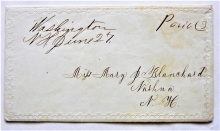 Washington
N.H. June 27.
Paid
Miss Mary Blanchard
Nashua
N. H.